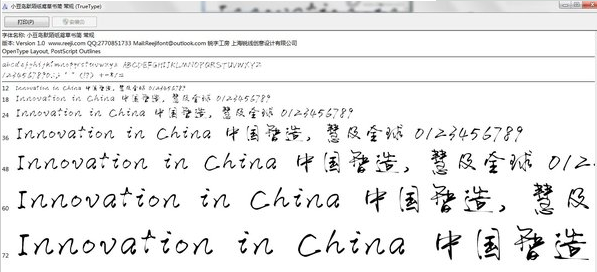 小豆岛默陌纸庭章书简 常规 (TrueType)
打印(P)
字体名称: 小豆岛默陌纸庭章书简 常规
版本: Version 1.0 www.reeji.com QQ:2770851733 Mail:Reejifont@outlook.com 锐字工房 上海锐线创意设计有限公司
OpenType Layout, PostScript Outlines
abcdefghijklmnopqrstuvwxyz ABCDEFGHIJKLMNOPQRSTUVWXYZ
12 Innovation in China 中国智造，慧及全球 0123456789
18 Innovation in China 中国智造，慧及全球 0123456789
24 Innovation in China 中国智造，慧及全球 0123456789
36 Innovation in China 中国智造，慧及全球 0123456789
48 Innovation in China 中国智造，慧及全球 012
60 Innovation in China 中国智造，慧及
72 Innovation in China 中国智造